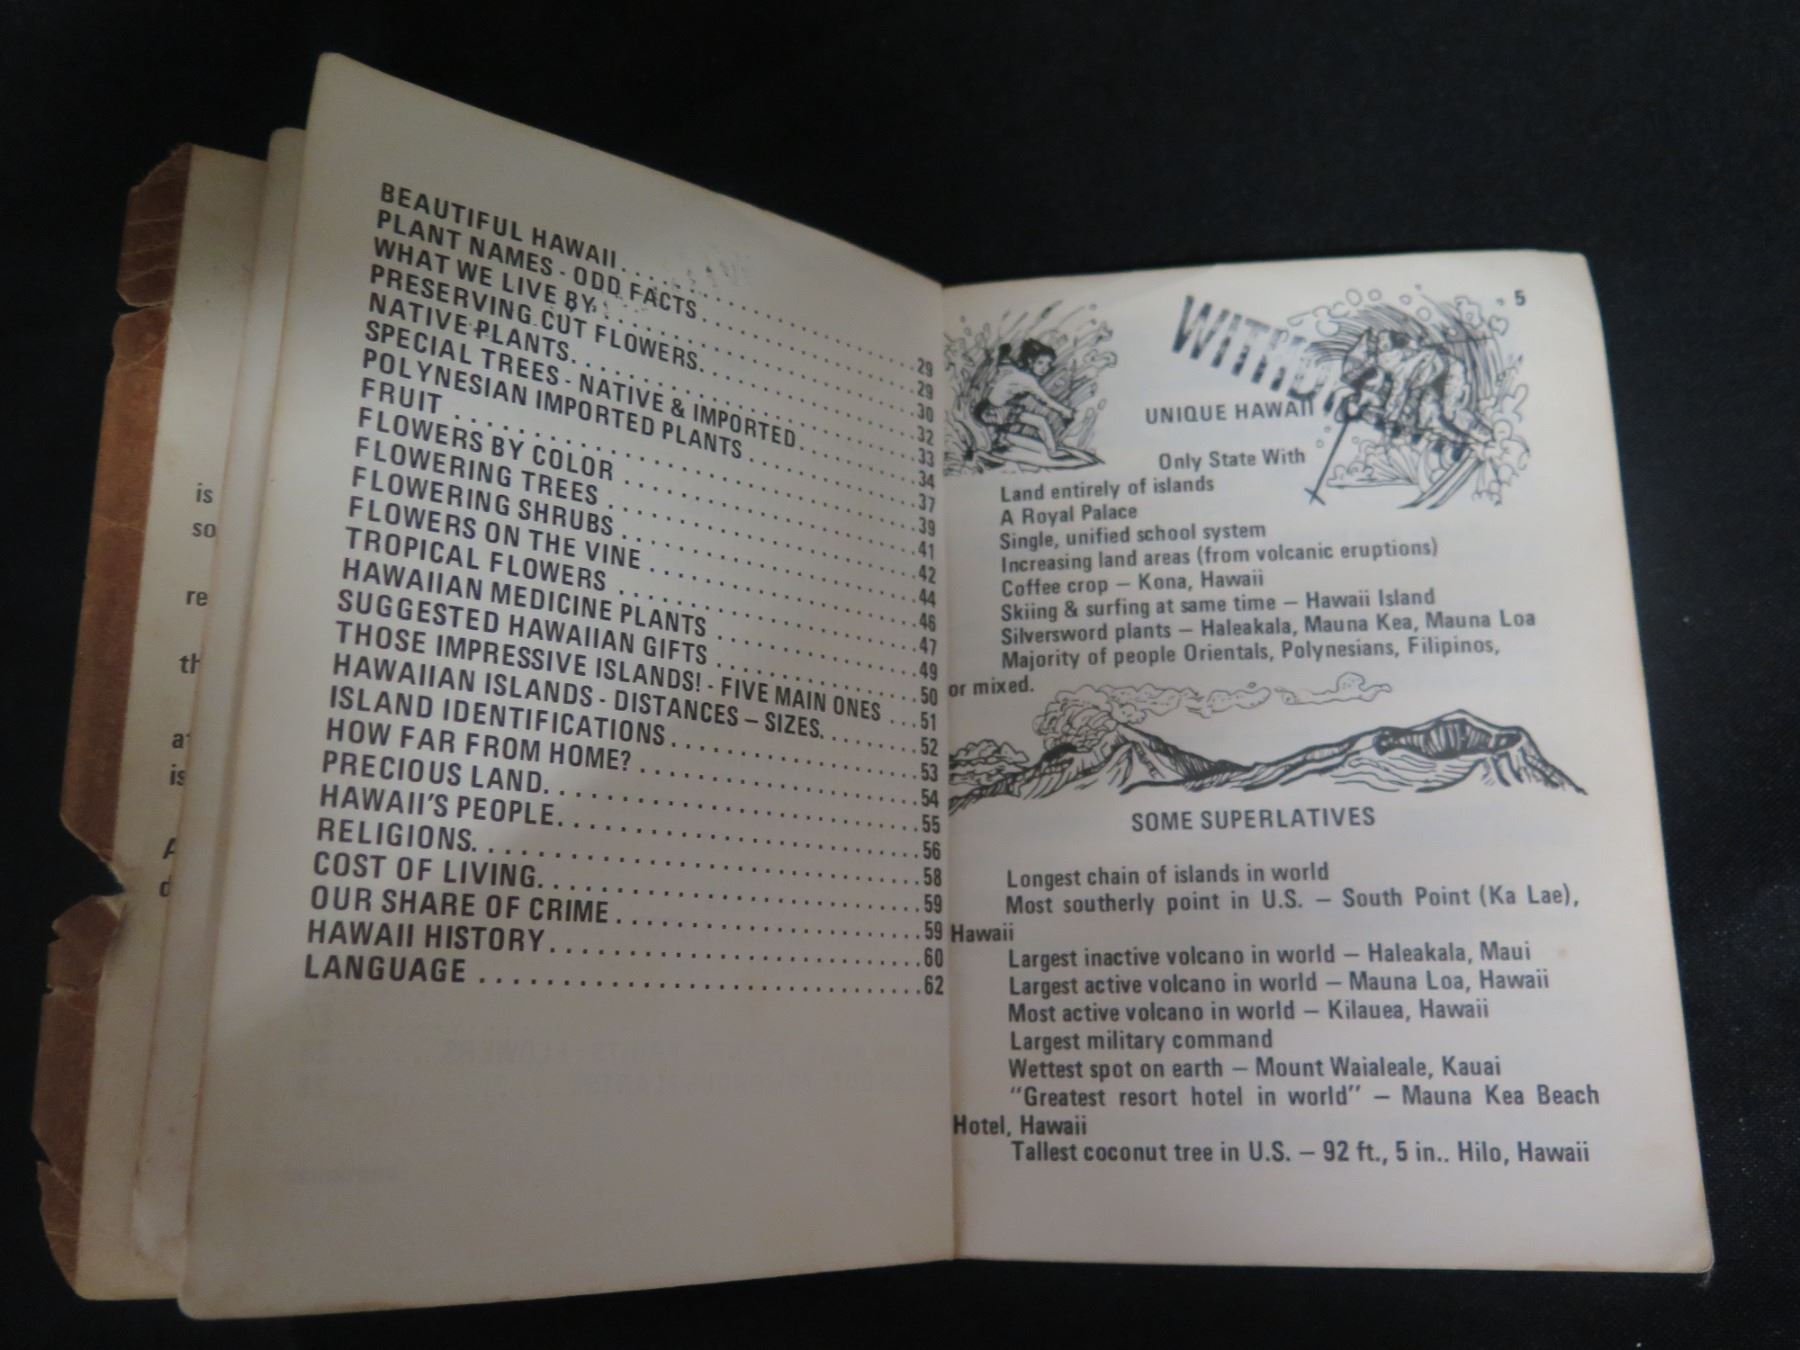 is
so
re
th
is
BEAUTIFUL HAWAII . . . . . . . . . . 29
PLANT NAMES - ODD FACTS . . . . . . . . . . 29
WHAT WE LIVE BY . . . . . . . . . . 30
PRESERVING CUT FLOWERS. . . . . . . . . . 32
NATIVE PLANTS. . . . . . . . . . 33
SPECIAL TREES - NATIVE & IMPORTED. . . . . . . . . . 34
POLYNESIAN IMPORTED PLANTS . . . . . . . . . . 37
FRUIT . . . . . . . . . . 39
FLOWERS BY COLOR . . . . . . . . . . 41
FLOWERING TREES . . . . . . . . . . 42
FLOWERING SHRUBS . . . . . . . . . . 44
FLOWERS ON THE VINE . . . . . . . . . . 46
TROPICAL FLOWERS . . . . . . . . . . 47
HAWAIIAN MEDICINE PLANTS . . . . . . . . . . 49
SUGGESTED HAWAIIAN GIFTS . . . . . . . . . . 50
THOSE IMPRESSIVE ISLANDS! - FIVE MAIN ONES . . . 51
HAWAIIAN ISLANDS - DISTANCES – SIZES. . . . . . . . 52
ISLAND IDENTIFICATIONS . . . . . . . . . . 53
HOW FAR FROM HOME? . . . . . . . . . . 54
PRECIOUS LAND. . . . . . . . . . 55
HAWAII'S PEOPLE. . . . . . . . . . 56
RELIGIONS. . . . . . . . . . 58
COST OF LIVING. . . . . . . . . . 59
OUR SHARE OF CRIME . . . . . . . . . . 59
HAWAII HISTORY . . . . . . . . . . 60
LANGUAGE . . . . . . . . . . 62
5
WITHD
UNIQUE HAWAII
Only State With
Land entirely of islands
A Royal Palace
Single, unified school system
Increasing land areas (from volcanic eruptions)
Coffee crop – Kona, Hawaii
Skiing & surfing at same time – Hawaii Island
Silversword plants – Haleakala, Mauna Kea, Mauna Loa
Majority of people Orientals, Polynesians, Filipinos,
or mixed.
SOME SUPERLATIVES
Longest chain of islands in world
Most southerly point in U.S. – South Point (Ka Lae),
Hawaii
Largest inactive volcano in world – Haleakala, Maui
Largest active volcano in world – Mauna Loa, Hawaii
Most active volcano in world – Kilauea, Hawaii
Largest military command
Wettest spot on earth – Mount Waialeale, Kauai
"Greatest resort hotel in world" – Mauna Kea Beach
Hotel, Hawaii
Tallest coconut tree in U.S. – 92 ft., 5 in.. Hilo, Hawaii